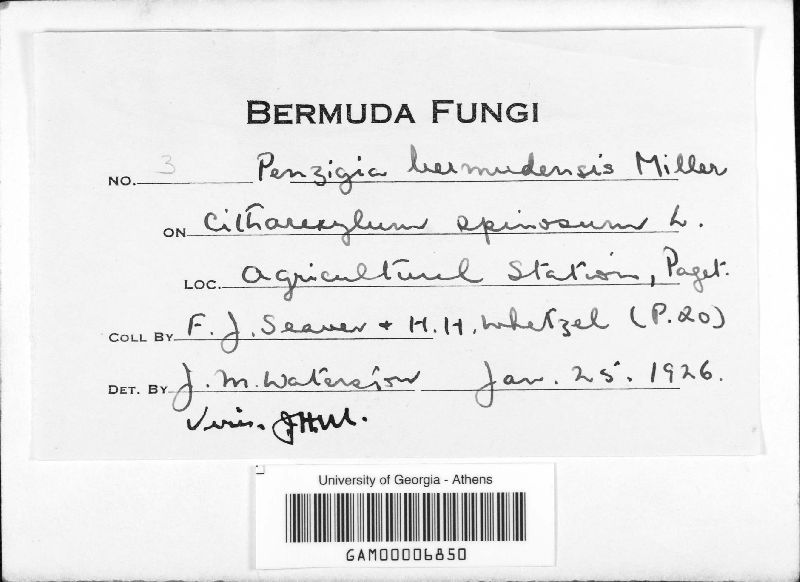 BERMUDA FUNGI
NO. 3 Penzigia bermudensis Miller
ON Citharexylum spinosum L.
LOC. Agricultural Station, Paget.
COLL BY F. J. Seaver + H. H. Whetzel (P. 20)
DET. BY J. M. Waterston Jan. 25. 1926.
Veri. J.H.M.
University of Georgia - Athens
GAM00006850